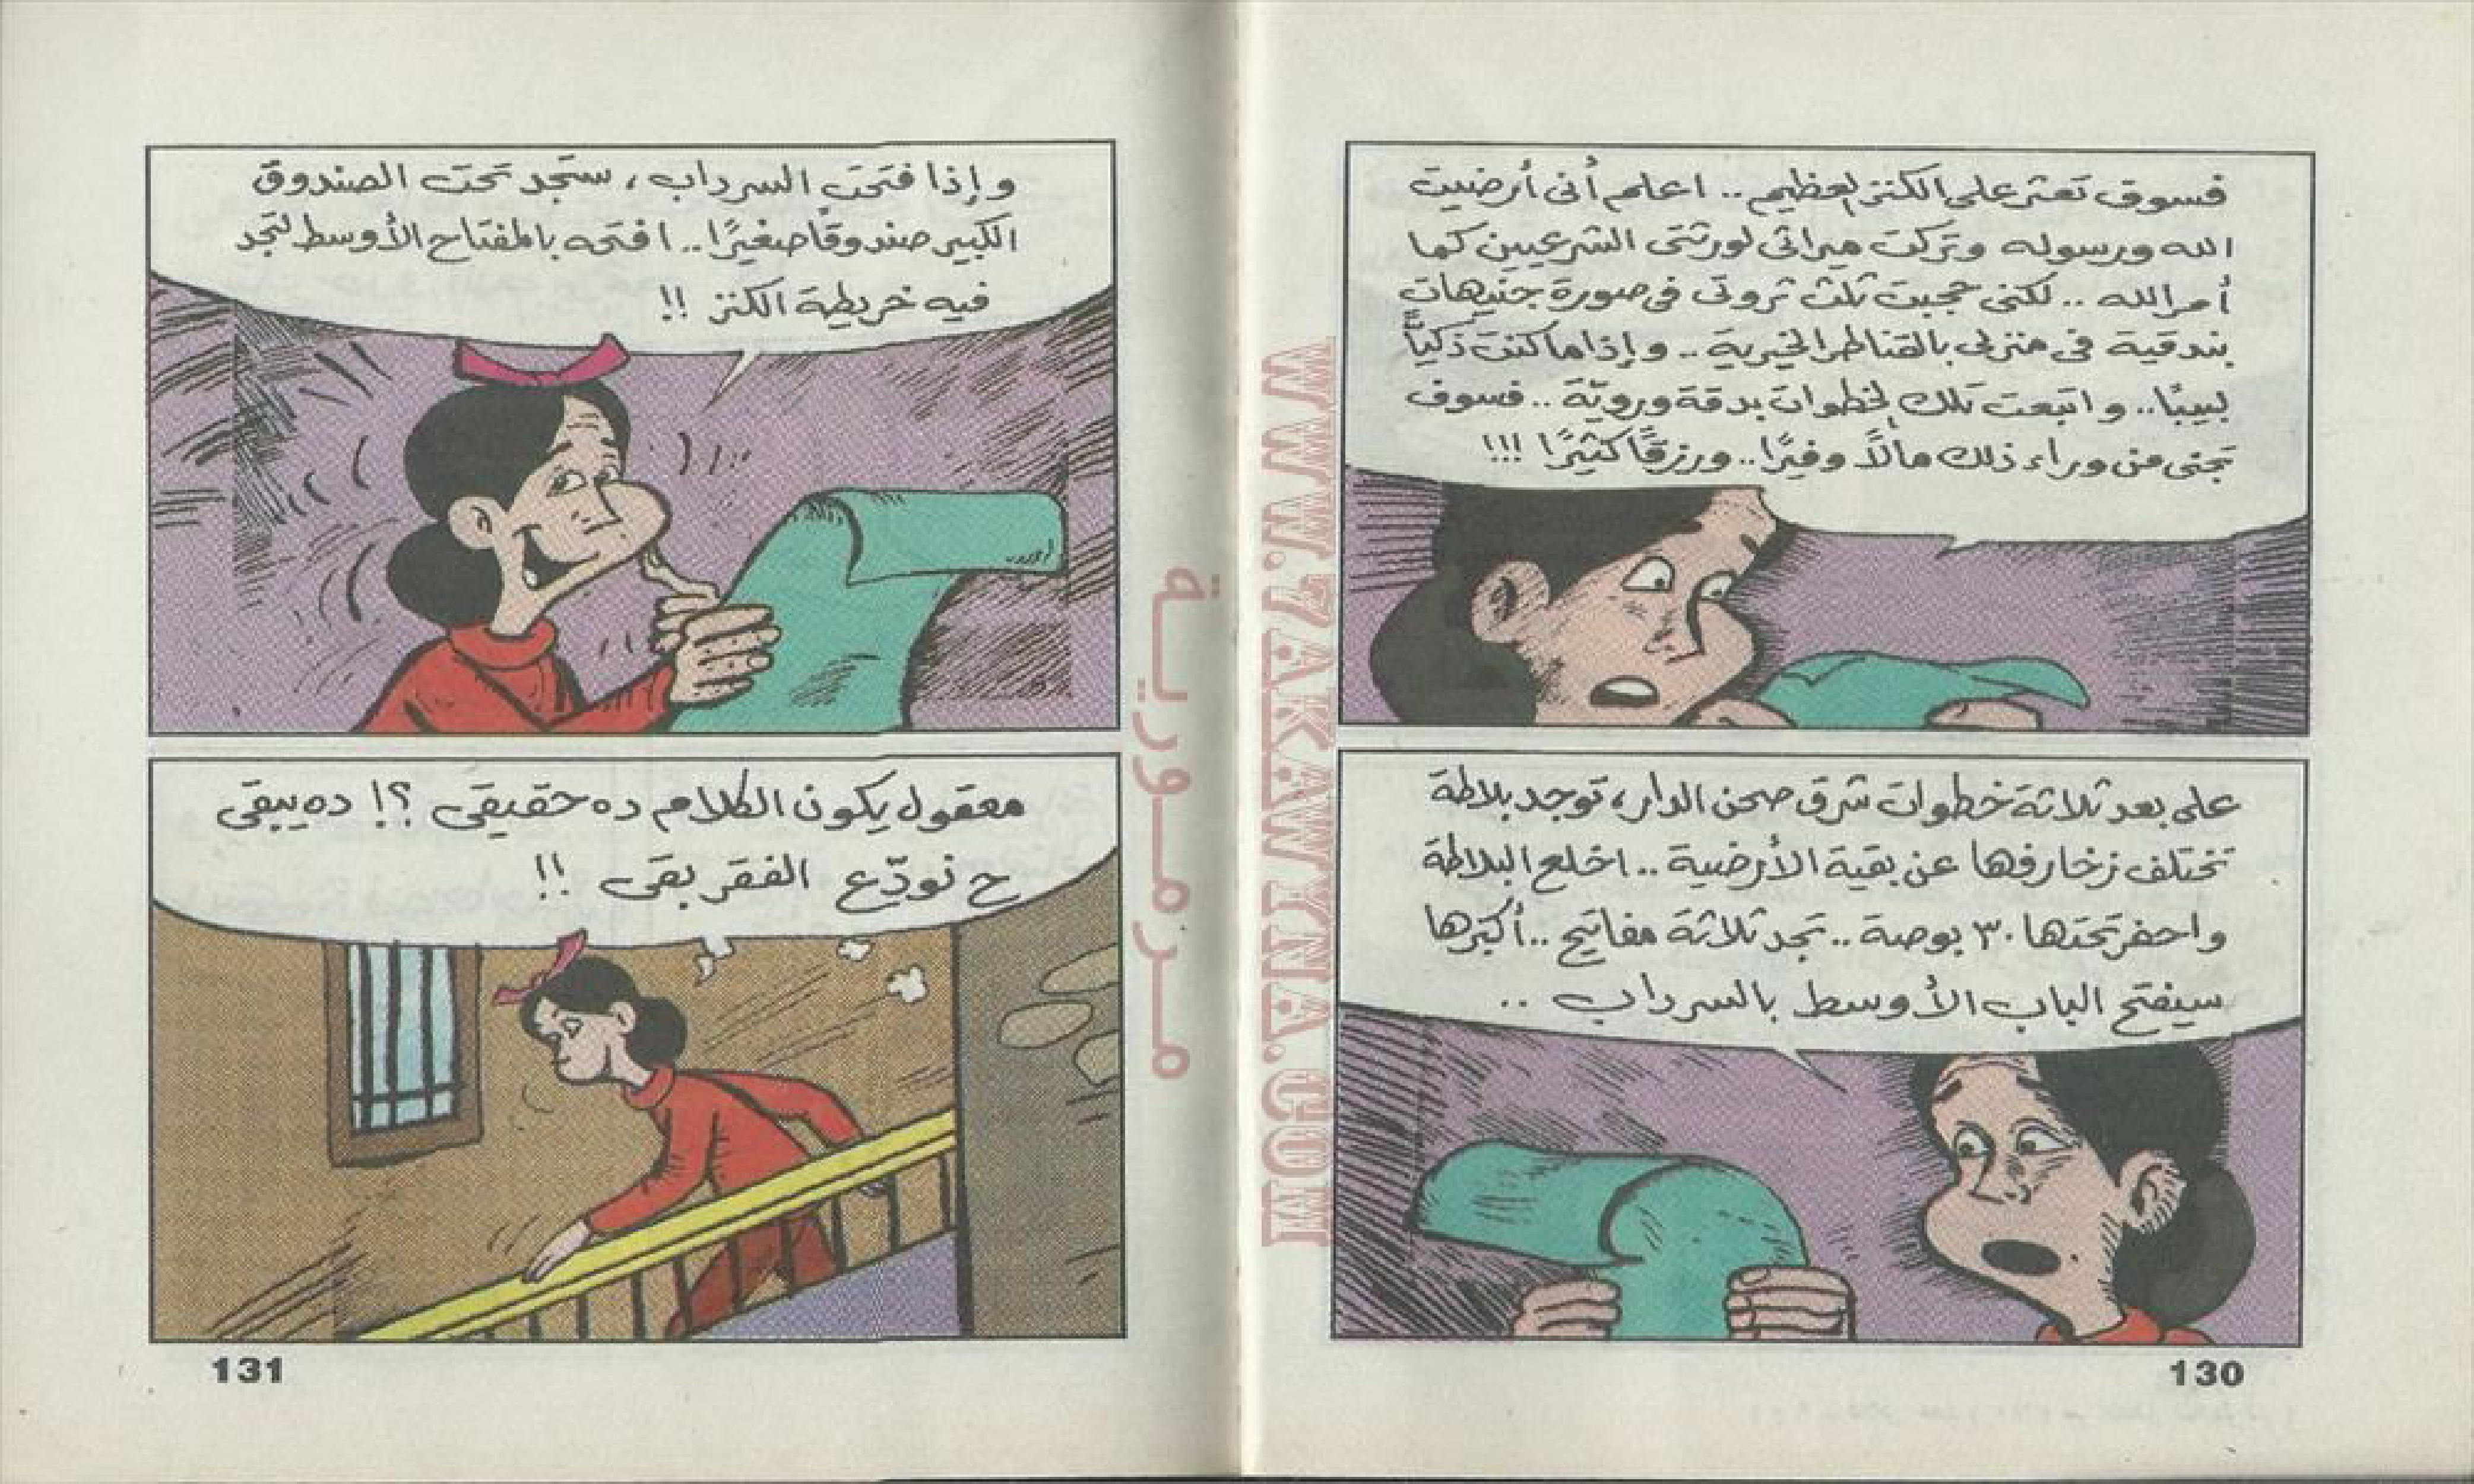 فسوق تعثر على الكنز العظيم .. اعلم أنى أرضيت
الله ورسوله وتركت ميراثى لورثتى الشرعيين كما
أمر الله .. لكنى حجبت ثلث ثروتى فى صورة جنيهات
بندقية فى منزلى بالقناطر الخيرية .. وإذا ما كنت ذكيًّا
لبيبًا .. واتبعت تلك الخطوات بدقة ورويّة .. فسوف
تجنى من وراء ذلك مالاً وفيرًا .. ورزقًا كثيرًا !!!
على بعد ثلاثة خطوات شرق صحن الدار، توجد بلاطة
تختلف زخارفها عن بقية الأرضية .. اخلع البلاطة
واحفر تحتها ٣٠ بوصة .. تجد ثلاثة مفاتيح .. أكبرها
سيفتح الباب الأوسط بالسرداب ..
130
وإذا فتحت السرداب، ستجد تحت الصندوق
الكبير صندوقًا صغيرًا .. افتحه بالمفتاح الأوسط لتجد
فيه خريطة الكنز !!
معقول يكون الكلام ده حقيقى ؟! ده يبقى
ح نودّع الفقر بقى !!
131
WWW.7AKAWYNA.COM
مرمورية